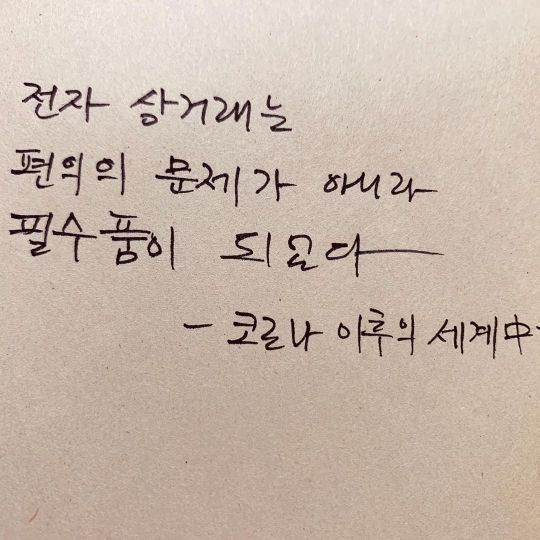 전자 상거래는
편의의 문제가 아니라
필수품이 되었다
- 코로나 이후의 세계中